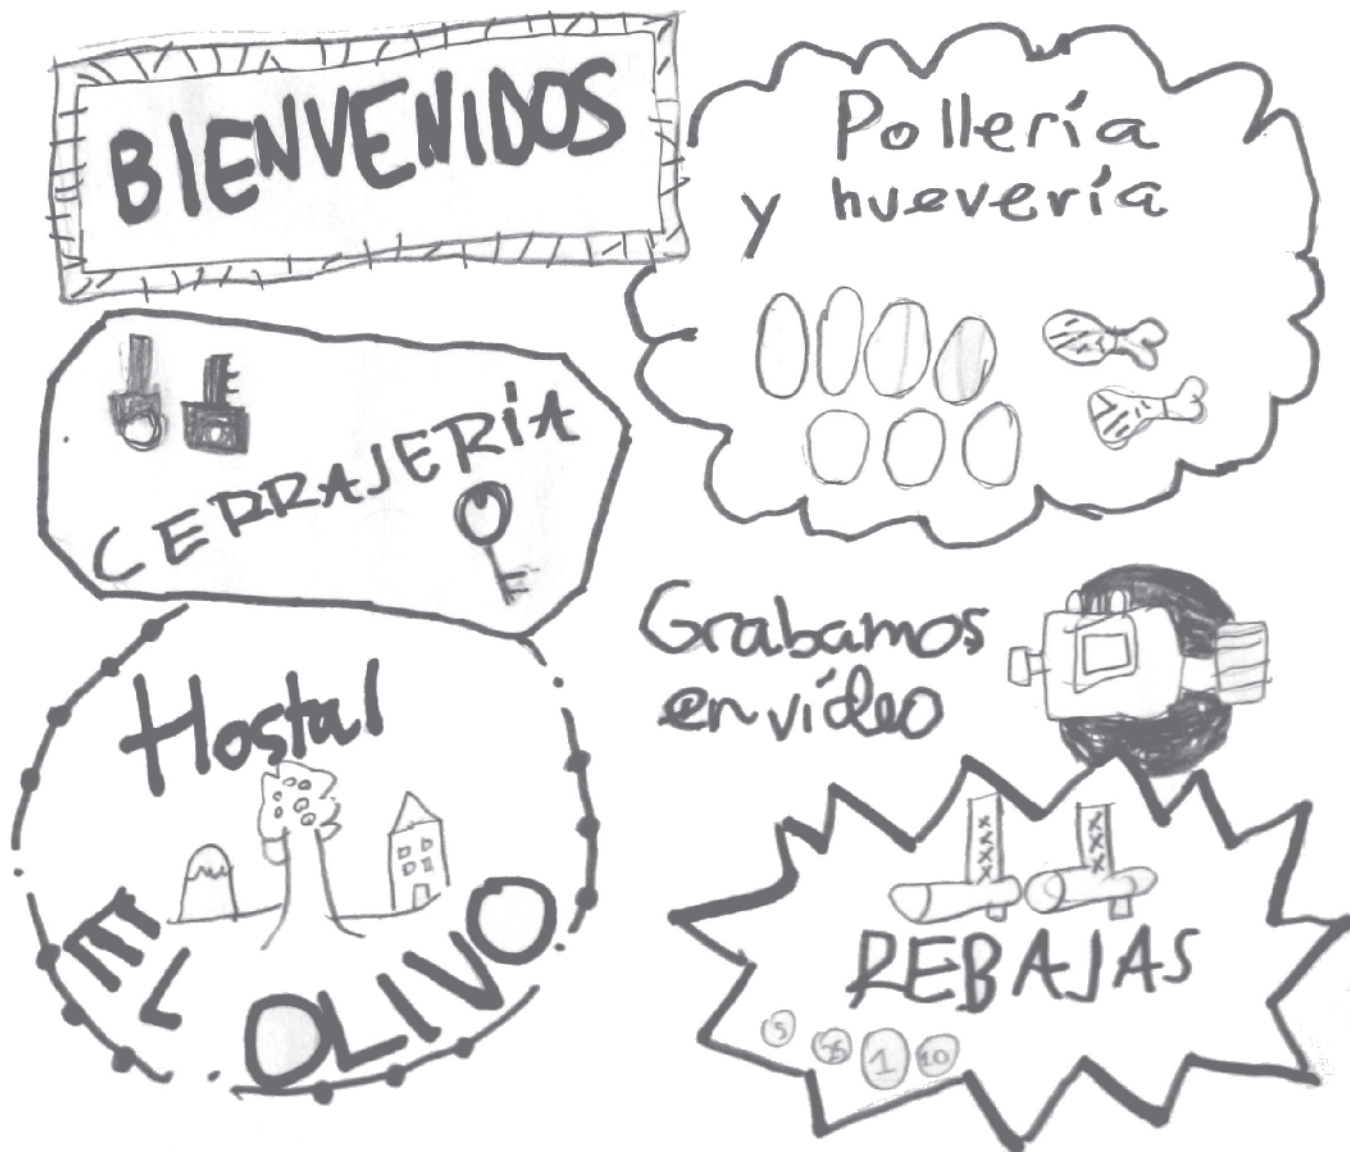 BIENVENIDOS
Pollería
y huevería
CERRAJERÍA
Grabamos
en vídeo
Hostal
EL OLIVO
REBAJAS
5
1
10